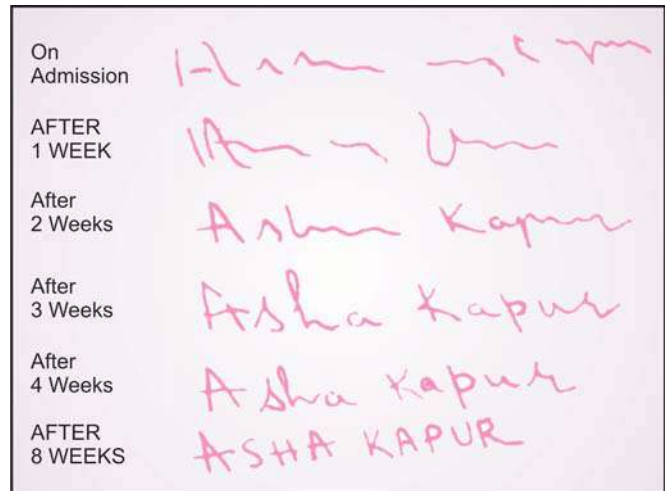 On
Admission
AFTER
1 WEEK
After
2 Weeks
Kapur
After
3 Weeks
Asha Kapur
After
4 Weeks
Asha Kapur
AFTER
8 WEEKS
ASHA KAPUR